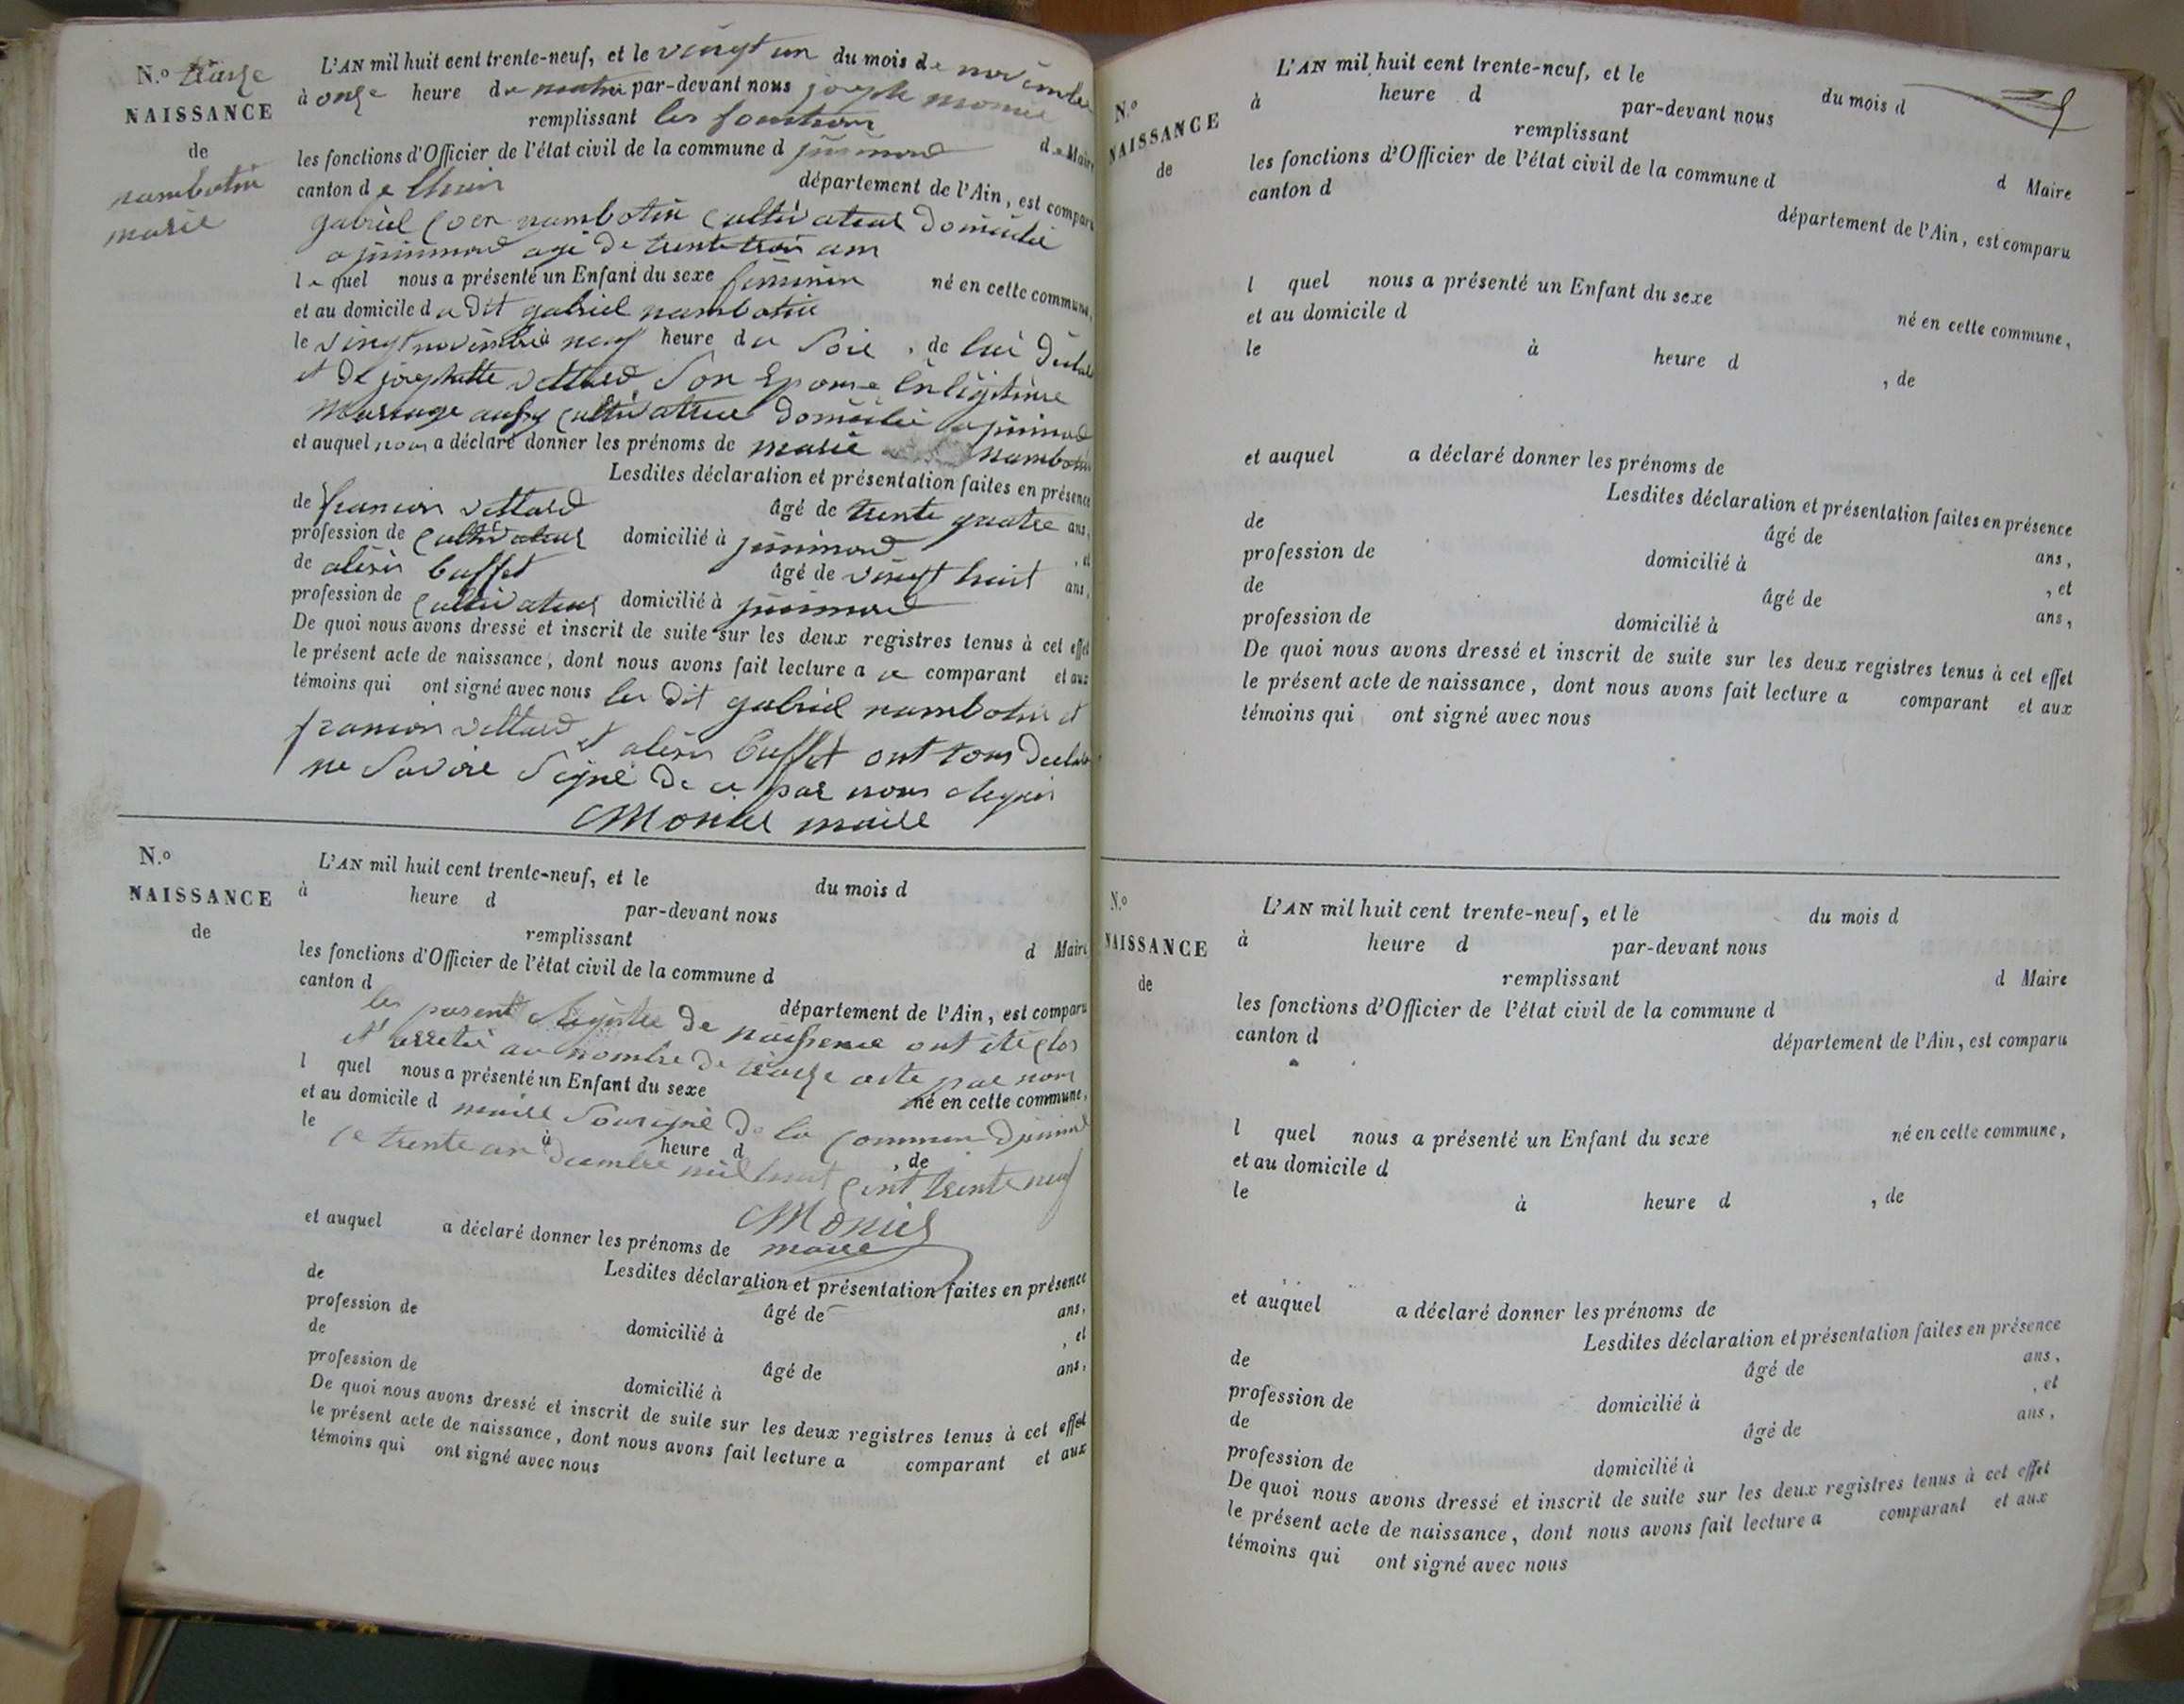 N.o
NAISSANCE
de
nambotin
marie
L'AN mil huit cent trente-neuf, et le vingt un du mois de novembre
à onze heure de matin par-devant nous joseph monier
remplissant les fonction
les fonctions d'Officier de l'état civil de la commune d jujurieux d Maire
canton de
département de l'Ain, est comparu
gabriel nambotin cultivateur domicilié
a agé de trente trois ans
le quel nous a présenté un Enfant du sexe féminin né en cette commune,
et au domicile du dit gabriel nambotin
le vingt novembre à neuf heure du soir, de lui déclar
et de josephette vettard son epouse en légitime
mariage aussy cultivatrice domicilié a
et auquel nous a déclaré donner les prénoms de marie nambotin
Lesdites déclaration et présentation faites en présence
de françois vettard âgé de trente quatre ans,
profession de cultivateur domicilié à , et
de alexis buffet âgé de vingt huit ans,
profession de cultivateur domicilié à
De quoi nous avons dressé et inscrit de suite sur les deux registres tenus à cet effet
le présent acte de naissance, dont nous avons fait lecture a comparant et aux
témoins qui ont signé avec nous les dit gabriel nambotin et
françois vettard et alexis buffet ont tous declare
ne savoir signé de ce par nous requis
Monier maire
N.o
NAISSANCE
de
L'AN mil huit cent trente-neuf, et le du mois d
à heure d par-devant nous
remplissant d Maire
les fonctions d'Officier de l'état civil de la commune d
canton d
département de l'Ain, est comparu
les present registre de naissence ont été clos
et arretté au nombre de acte par nous
l quel nous a présenté un Enfant du sexe né en cette commune,
et au domicile d
maire sousigné de la commune
le à heure d , de
le trente un decembre mil huit cent trente neuf
Monier
et auquel a déclaré donner les prénoms de
maire
Lesdites déclaration et présentation faites en présence
de âgé de ans,
profession de domicilié à , et
de âgé de ans,
profession de domicilié à
De quoi nous avons dressé et inscrit de suite sur les deux registres tenus à cet effet
le présent acte de naissance, dont nous avons fait lecture a comparant et aux
témoins qui ont signé avec nous
N.o
NAISSANCE
de
L'AN mil huit cent trente-neuf, et le du mois d
à heure d par-devant nous
remplissant d Maire
les fonctions d'Officier de l'état civil de la commune d
canton d
département de l'Ain, est comparu
l quel nous a présenté un Enfant du sexe né en cette commune,
et au domicile d
le à heure d , de
et auquel a déclaré donner les prénoms de
Lesdites déclaration et présentation faites en présence
de âgé de ans,
profession de domicilié à , et
de âgé de ans,
profession de domicilié à
De quoi nous avons dressé et inscrit de suite sur les deux registres tenus à cet effet
le présent acte de naissance, dont nous avons fait lecture a comparant et aux
témoins qui ont signé avec nous
N.o
NAISSANCE
de
L'AN mil huit cent trente-neuf, et le du mois d
à heure d par-devant nous
remplissant d Maire
les fonctions d'Officier de l'état civil de la commune d
canton d
département de l'Ain, est comparu
l quel nous a présenté un Enfant du sexe né en cette commune,
et au domicile d
le à heure d , de
et auquel a déclaré donner les prénoms de
Lesdites déclaration et présentation faites en présence
de âgé de ans,
profession de domicilié à , et
de âgé de ans,
profession de domicilié à
De quoi nous avons dressé et inscrit de suite sur les deux registres tenus à cet effet
le présent acte de naissance, dont nous avons fait lecture a comparant et aux
témoins qui ont signé avec nous